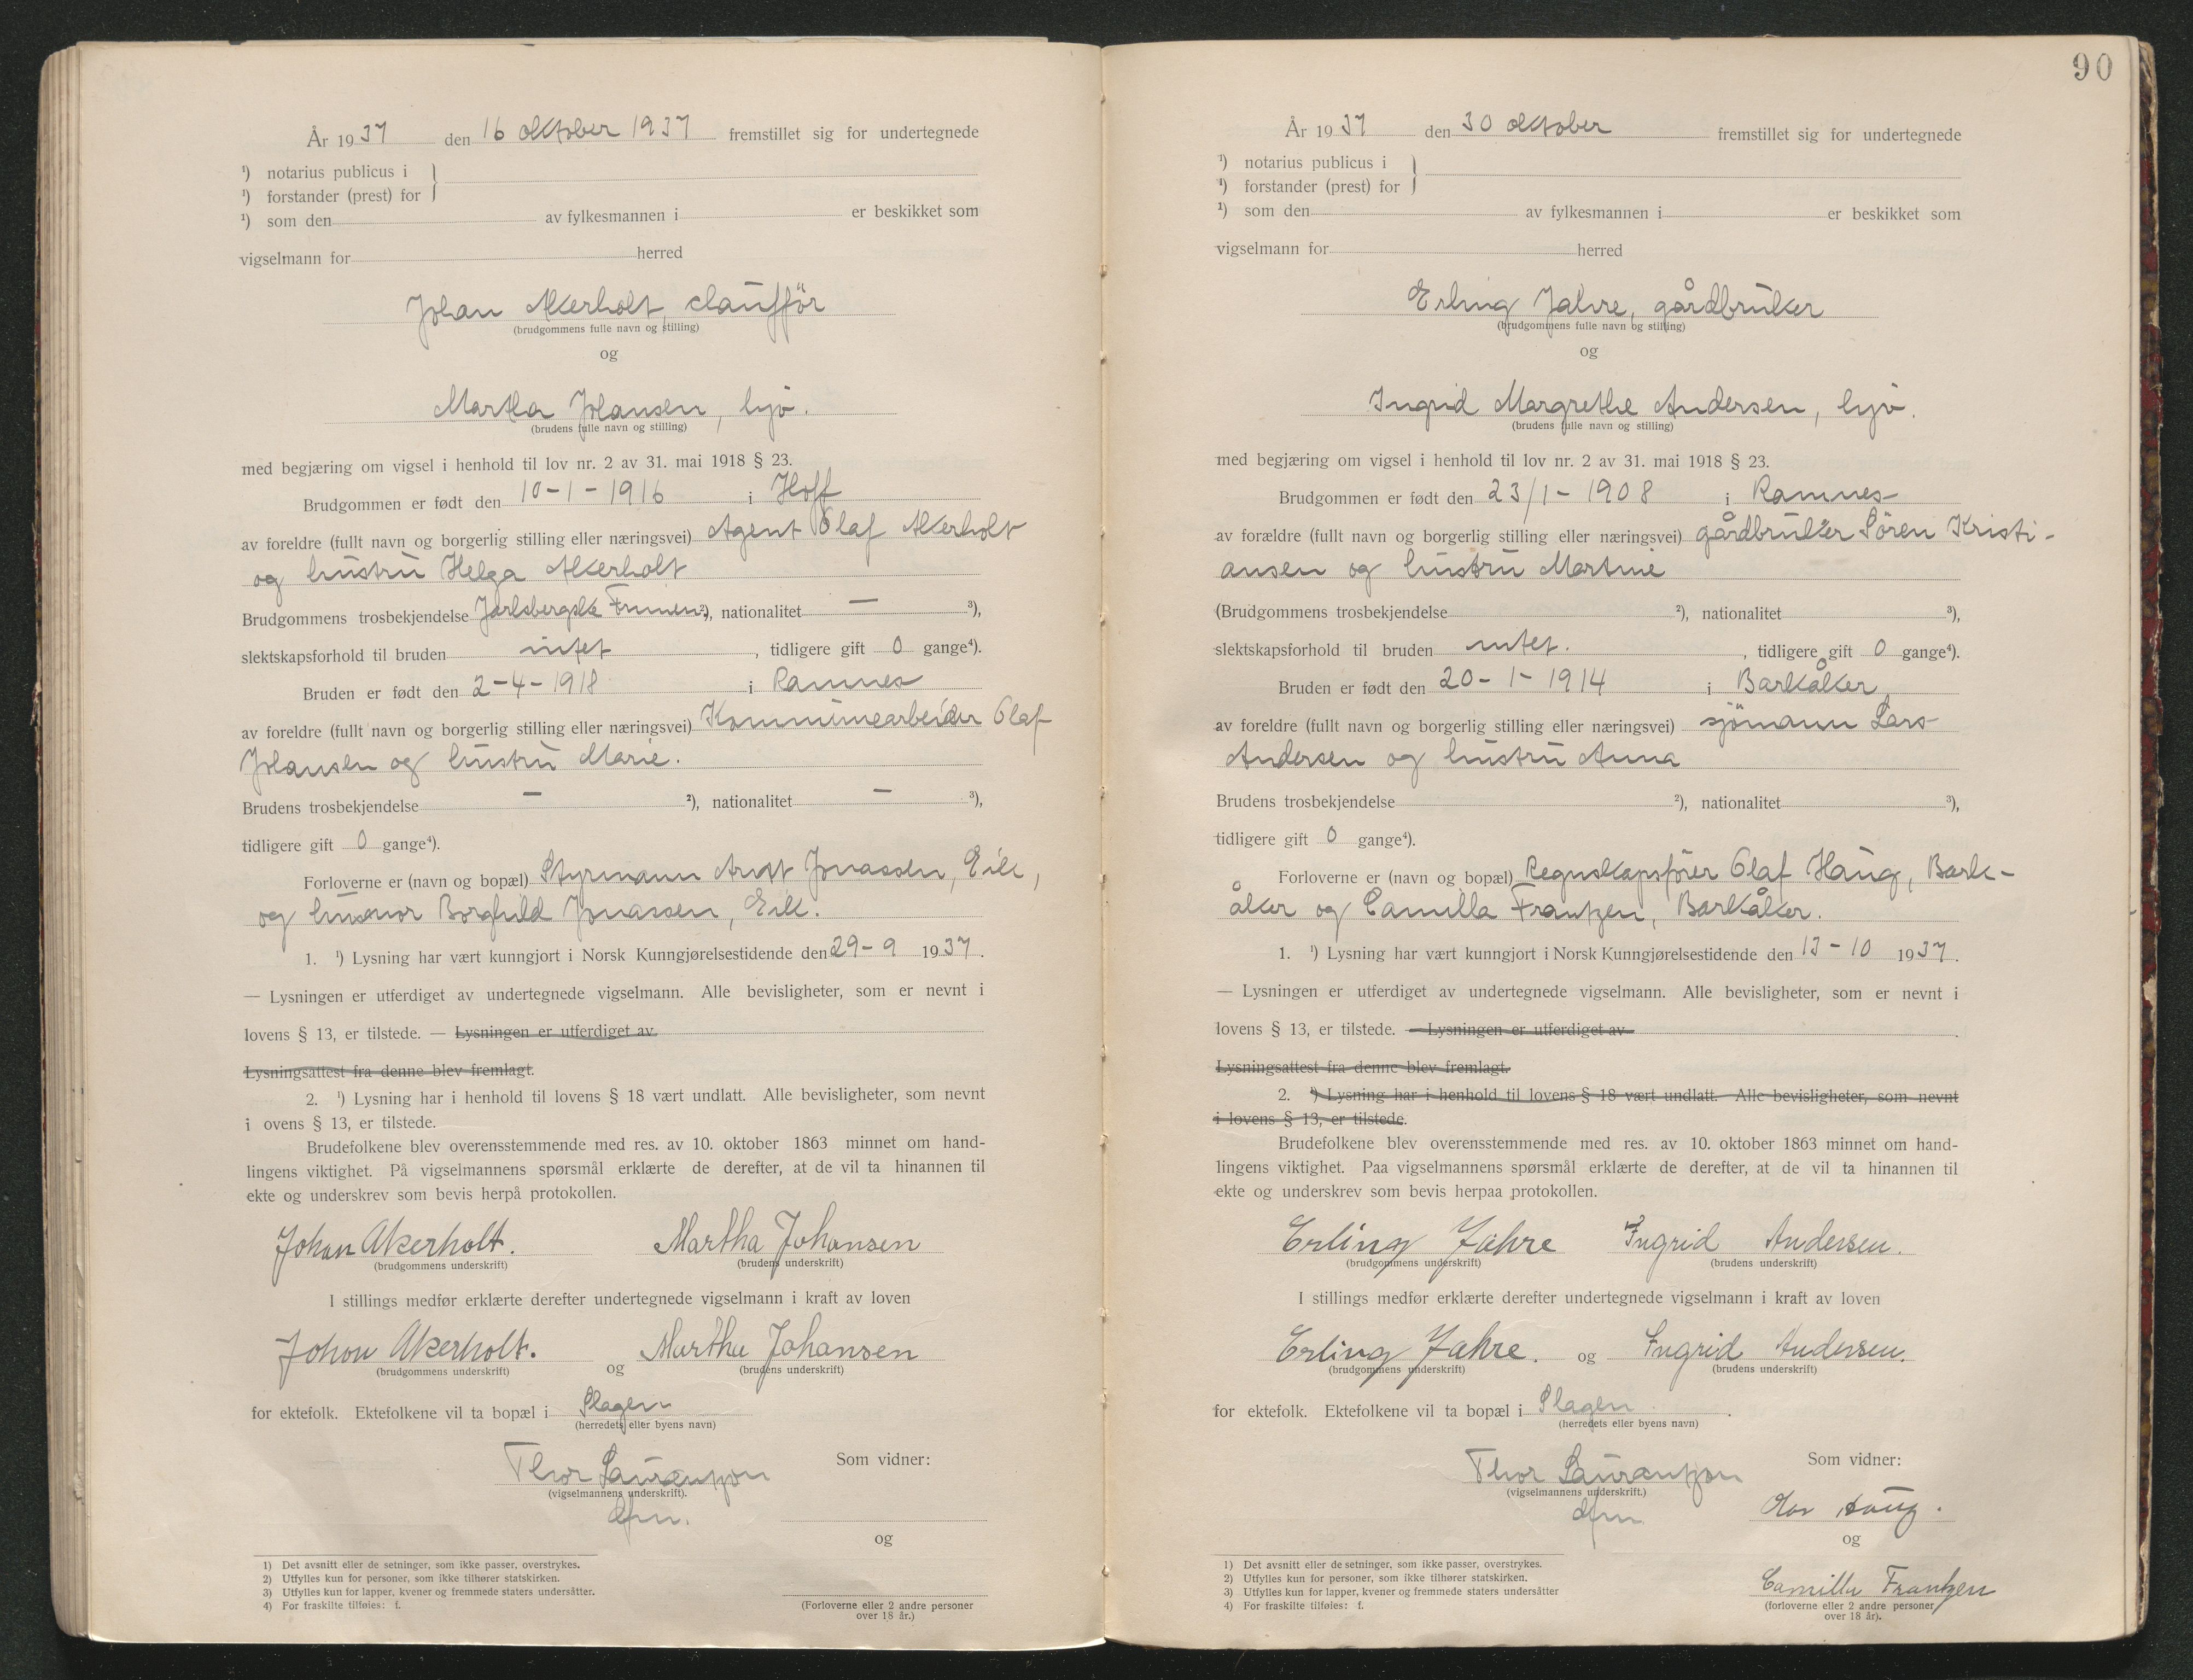 År 1937 den 16 oktober 1937 fremstillet sig for undertegnede
¹) notarius publicus i }
¹) forstander (prest) for
¹) som den av fylkesmannen i er beskikket som
vigselmann for herred
Johan Akerholt, chauffør
(brudgommens fulle navn og stilling)
og
Martha Johansen, hjv.
(brudens fulle navn og stilling)
med begjæring om vigsel i henhold til lov nr. 2 av 31. mai 1918 § 23.
Brudgommen er født den 10-1-1916 i Hoff
av foreldre (fullt navn og borgerlig stilling eller næringsvei) Agent Olaf Akerholt
og hustru Helga Akerholt
Brudgommens trosbekjendelse Jarlsbergske Frimen. ²), nationalitet — ³),
slektskapsforhold til bruden intet, tidligere gift 0 gange⁴).
Bruden er født den 2-4-1918 i Ramnes
av foreldre (fullt navn og borgerlig stilling eller næringsvei) Kommunearbeider Olaf
Johansen og hustru Marie.
Brudens trosbekjendelse — ²), nationalitet — ³),
tidligere gift 0 gange⁴).
Forloverne er (navn og bopæl) Styrmann Arnt Jonassen, Eik,
og husmor Borghild Jonassen, Eik.
1. ¹) Lysning har vært kunngjort i Norsk Kunngjørelsestidende den 29-9 1937.
— Lysningen er utferdiget av undertegnede vigselmann. Alle bevisligheter, som er nevnt i
lovens § 13, er tilstede. — Lysningen er utferdiget av
Lysningsattest fra denne blev fremlagt.
2. ¹) Lysning har i henhold til lovens § 18 vært undlatt. Alle bevisligheter, som nevnt
i ovens § 13, er tilstede.
Brudefolkene blev overensstemmende med res. av 10. oktober 1863 minnet om hand-
lingens viktighet. På vigselmannens spørsmål erklærte de derefter, at de vil ta hinannen til
ekte og underskrev som bevis herpå protokollen.
Johan Akerholt. Martha Johansen
(brudgommens underskrift) (brudens underskrift)
I stillings medfør erklærte derefter undertegnede vigselmann i kraft av loven
Johan Akerholt. og Martha Johansen
(brudgommens underskrift) (brudens underskrift)
for ektefolk. Ektefolkene vil ta bopæl i Slagen
(herredets eller byens navn)
Thor Laurentzon Som vidner:
(vigselmannens underskrift).
dfm.
og
1) Det avsnitt eller de setninger, som ikke passer, overstrykes.
2) Utfylles kun for personer, som ikke tilhører statskirken.
3) Utfylles kun for lapper, kvener og fremmede staters undersåtter.
4) For fraskilte tilføies: f.
(Forloverne eller 2 andre personer
over 18 år.)
90
År 1937 den 30 oktober fremstillet sig for undertegnede
¹) notarius publicus i }
¹) forstander (prest) for
¹) som den av fylkesmannen i er beskikket som
vigselmann for herred
Erling Jahre, gårdbruker
(brudgommens fulle navn og stilling)
og
Ingrid Margrethe Andersen, hjv.
(brudens fulle navn og stilling)
med begjæring om vigsel i henhold til lov nr. 2 av 31. mai 1918 § 23.
Brudgommen er født den 23/1-1908 i Ramnes
av forældre (fullt navn og borgerlig stilling eller næringsvei) gårdbruker Sören Kristi-
ansen og hustru Martine
(Brudgommens trosbekjendelse ²), nationalitet ³),
slektskapsforhold til bruden intet., tidligere gift 0 gange⁴).
Bruden er født den 20-1-1914 i Barkåker,
av foreldre (fullt navn og borgerlig stilling eller næringsvei) sjömann Lars
Andersen og hustru Anna
Brudens trosbekjendelse ²), nationalitet ³),
tidligere gift 0 gange⁴).
Forloverne er (navn og bopæl) Regnskapsfører Olaf Haug, Bark-
åker og Camilla Frantzen, Barkåker.
1. ¹) Lysning har vært kunngjort i Norsk Kunngjørelsestidende den 13-10 1937.
— Lysningen er utferdiget av undertegnede vigselmann. Alle bevisligheter, som er nevnt i
lovens § 13, er tilstede. — Lysningen er utferdiget av
Lysningsattest fra denne blev fremlagt.
2. ¹) Lysning har i henhold til lovens § 18 vært undlatt. Alle bevisligheter, som nevnt
i lovens § 13, er tilstede.
Brudefolkene blev overensstemmende med res. av 10. oktober 1863 minnet om hand-
lingens viktighet. Paa vigselmannens spørsmål erklærte de derefter, at de vil ta hinannen til
ekte og underskrev som bevis herpaa protokollen.
Erling Jahre Ingrid Andersen.
(brudgommens underskrift) (brudens underskrift)
I stillings medfør erklærte derefter undertegnede vigselmann i kraft av loven
Erling Jahre. og Ingrid Andersen.
(brudgommens underskrift) (brudens underskrift)
for ektefolk. Ektefolkene vil ta bopæl i Slagen.
(herredets eller byens navn)
Thor Laurentzon Som vidner:
(vigselmannens underskrift.)
dfm Haug.
og
1) Det avsnitt eller de setninger, som ikke passer, overstrykes.
2) Utfylles kun for personer, som ikke tilhører statskirken.
3) Utfylles kun for lapper, kvener og fremmede staters undersåtter
4) For fraskilte tilføies: f.
Camilla Frantzen
(forloverne eller 2 andre personer
over 18 år).